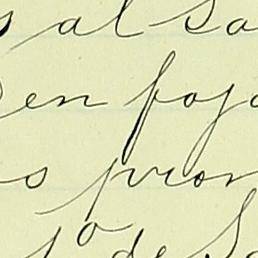 s al Sa
en foja
s pron
jo de Sa